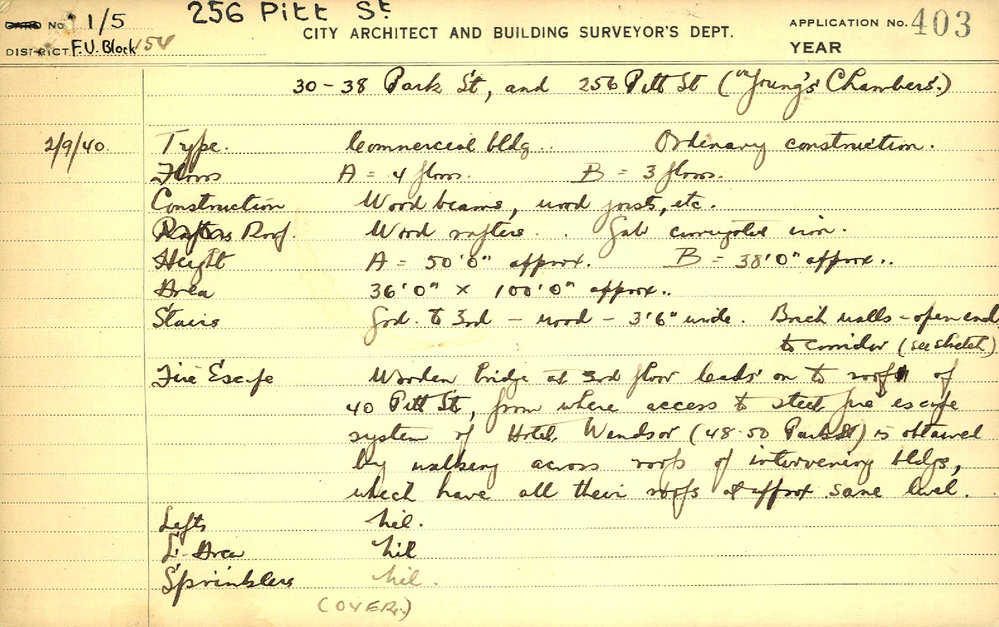 256 Pitt St
CARD No 1/5 CITY ARCHITECT AND BUILDING SURVEYOR'S DEPT. APPLICATION No. 403
DISTRICT F.U. Block 154 YEAR
30-38 Park St, and 256 Pitt St ("Young's Chambers".)
2/9/40. Type. Commercial bldg. Ordinary construction.
Floors A = 4 floors. B = 3 floors.
Construction Wood beams, wood joists, etc.
Rafters Roof. Wood rafters. Galv corrugated iron.
Height A = 50'0" approx. B = 38'0" approx.
Area 36'0" x 100'0" approx.
Stairs Grd. to 3rd - wood - 3'6" wide. Brick walls - open end
to corridor (see sketch)
Fire Escape Wooden bridge at 3rd floor leads on to roof of
40 Pitt St, from where access to steel fire escape
system of Hotel Windsor (48-50 Park St) is obtained
by walking across roofs of intervening bldgs,
which have all their roofs at approx same level.
Lifts Nil.
L. Area Nil
Sprinklers Nil.
(OVER.)